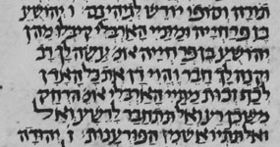 תורה וסופו יורש לגיהנם : ו יהושע
בן פרחייה ומתיי הארבלי קיבלו מהן
יהושע בן פרחייה אומ׳ עשה לך רב
וקנה לך חבר והוי דן את כל האדן
לכף זכות מתיי הארבלי אומ׳ הרחק
משכן רע ואל תתחבר לרשע ואל
ואל תתייאש מן הפורענות : ז יהודה